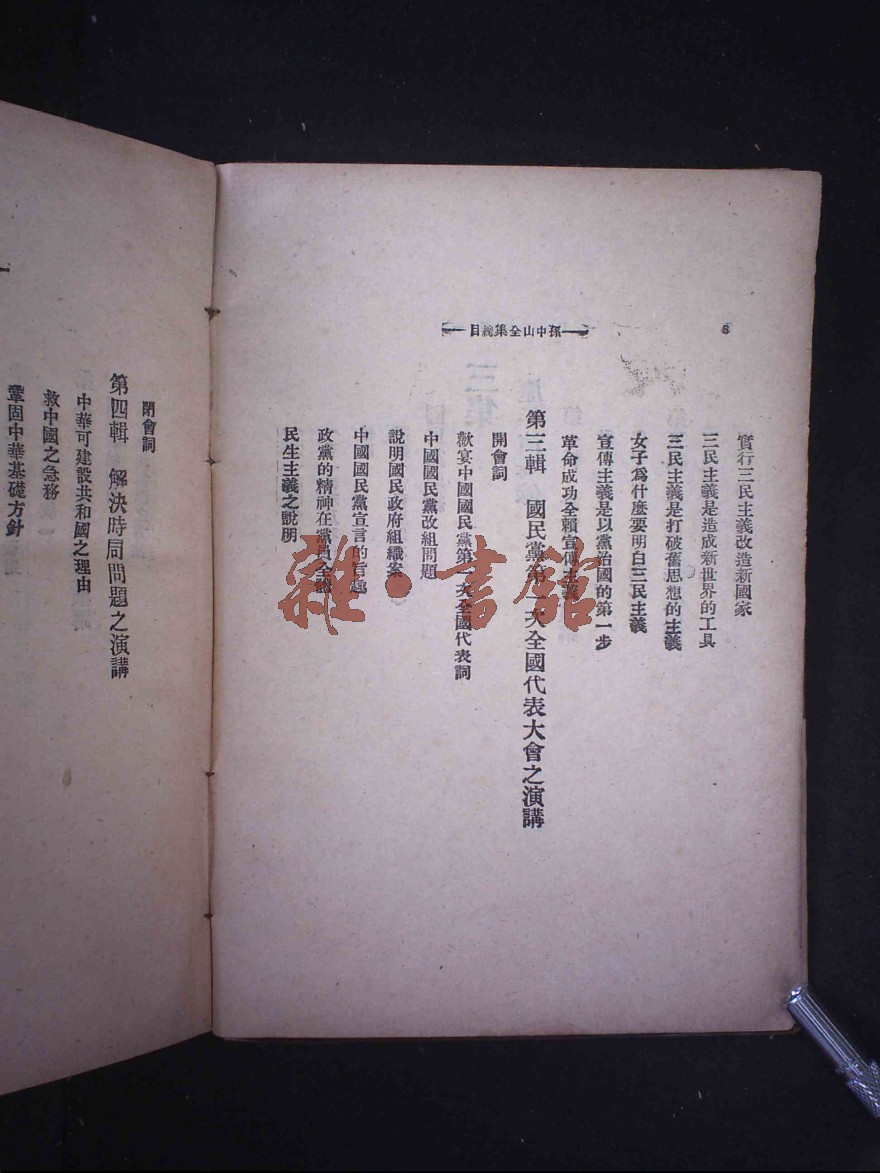 孫中山全集總目
實行三民主義改造新國家
三民主義是造成新世界的工具
三民主義是打破舊思想的主義
女子爲什麼要明白三民主義
宣傳主義是以黨治國的第一步
革命成功全賴宣傳主義
第三輯 國民黨第一次全國代表大會之演講
開會詞
歡宴中國國民黨第一次全國代表詞
中國國民黨改組問題
說明國民政府組織案
中國國民黨宣言的旨趣
政黨的精神在黨員全體
民生主義之說明
閉會詞
第四輯 解決時局問題之演講
中華可建設共和國之理由
救中國之急務
鞏固中華基礎方針
雜·書館